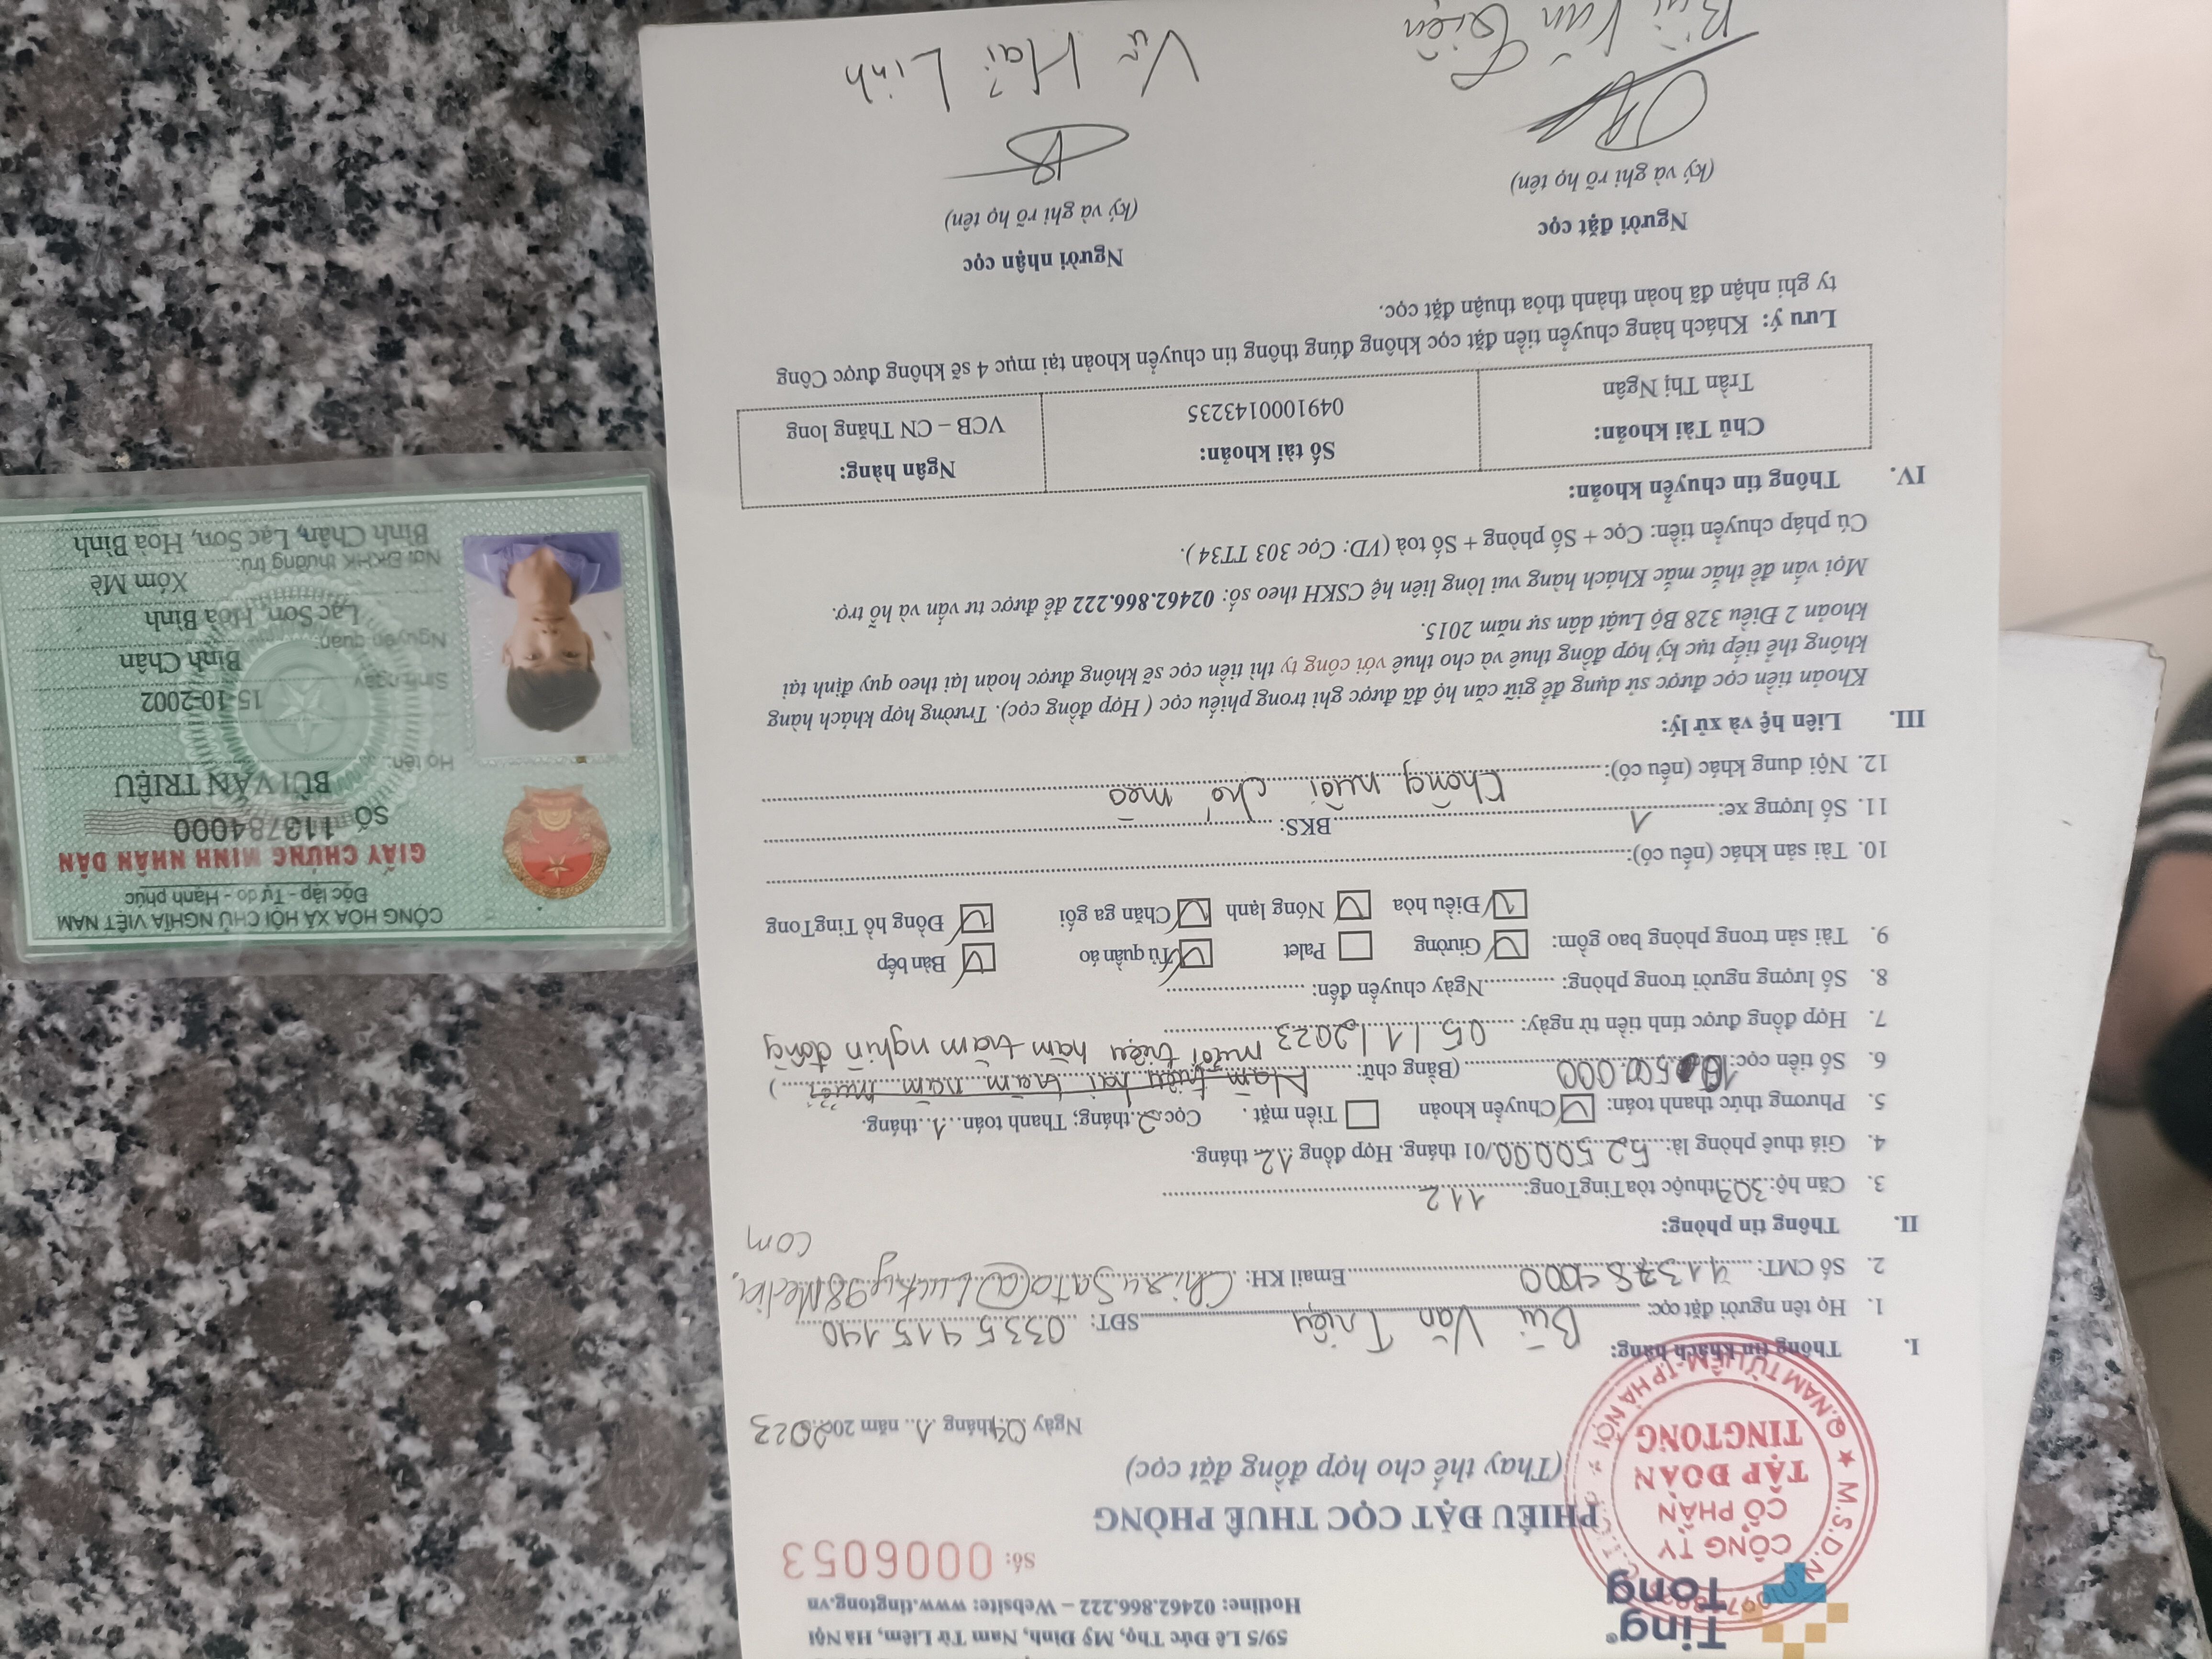 Ting
Tong
59/5 Lê Đức Thọ, Mỹ Đình, Nam Từ Liêm, Hà Nội
Hotline: 02462.866.222 – Website: www.tingtong.vn
Số: 0006053
CÔNG TY
CỔ PHẦN
TẬP ĐOÀN
TINGTONG
M.S.D.N
Q.NAM TỪ LIÊM-TP.HÀ NỘI
PHIẾU ĐẶT CỌC THUÊ PHÒNG
(Thay thế cho hợp đồng đặt cọc)
Ngày 04 tháng 1 năm 2022023
I. Thông tin khách hàng:
1. Họ tên người đặt cọc: Bùi Văn Triệu SĐT: 0335415140
2. Số CMT: 113784000 Email KH: ChizuSato@Lucky98Media.
com
II. Thông tin phòng:
3. Căn hộ: 307 thuộc tòa TingTong: 112
4. Giá thuê phòng là: 5250000/01 tháng. Hợp đồng 12 tháng.
5. Phương thức thanh toán: Chuyển khoản Tiền mặt . Cọc 2 tháng; Thanh toán 1 tháng.
6. Số tiền cọc: 10.500.000 (Bằng chữ: Năm triệu hai trăm năm mươi)
mười triệu năm trăm nghìn đồng
7. Hợp đồng được tính tiền từ ngày: 05/1/2023
8. Số lượng người trong phòng: Ngày chuyển đến:
9. Tài sản trong phòng bao gồm: Giường Palet Tủ quần áo Bàn bếp
Điều hòa Nóng lạnh Chăn ga gối Đồng hồ TingTong
10. Tài sản khác (nếu có):
11. Số lượng xe: 1 BKS:
12. Nội dung khác (nếu có): Không nuôi chó mèo
III. Liên hệ và xử lý:
Khoản tiền cọc được sử dụng để giữ căn hộ đã được ghi trong phiếu cọc ( Hợp đồng cọc). Trường hợp khách hàng
không thể tiếp tục ký hợp đồng thuê và cho thuê với công ty thì tiền cọc sẽ không được hoàn lại theo quy định tại
khoản 2 Điều 328 Bộ Luật dân sự năm 2015.
Mọi vấn đề thắc mắc Khách hàng vui lòng liên hệ CSKH theo số: 02462.866.222 để được tư vấn và hỗ trợ.
Cú pháp chuyển tiền: Cọc + Số phòng + Số toà (VD: Cọc 303 TT34 ).
IV. Thông tin chuyển khoản:
Chủ Tài khoản: Số tài khoản: Ngân hàng:
Trần Thị Ngân 0491000143235 VCB – CN Thăng long
Lưu ý: Khách hàng chuyển tiền đặt cọc không đúng thông tin chuyển khoản tại mục 4 sẽ không được Công
ty ghi nhận đã hoàn thành thỏa thuận đặt cọc.
Người đặt cọc Người nhận cọc
(ký và ghi rõ họ tên) (ký và ghi rõ họ tên)
Bùi Văn Vũ Hải Linh
CỘNG HÒA XÃ HỘI CHỦ NGHĨA VIỆT NAM
Độc lập - Tự do - Hạnh phúc
GIẤY CHỨNG MINH NHÂN DÂN
SỐ 113784000
Họ tên: BÙI VĂN TRIỆU
Sinh ngày 15-10-2002
Nguyên quán: Bình Chân
Lạc Sơn, Hoà Bình
Nơi ĐKHK thường trú: Xóm Mè
Bình Chân, Lạc Sơn, Hoà Bình